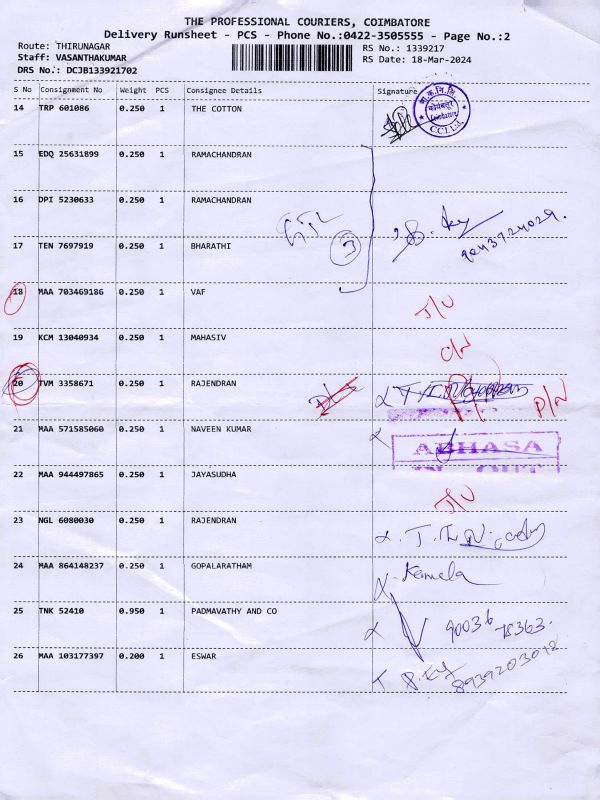 THE PROFESSIONAL COURIERS, COIMBATORE
Delivery Runsheet - PCS - Phone No.:0422-3505555 - Page No.:2
Route: THIRUNAGAR RS No.: 1339217
Staff: VASANTHAKUMAR RS Date: 18-Mar-2024
DRS No.: DCJB133921702
S No Consignment No Weight PCS Consignee Details Signature
14 TRP 601086 0.250 1 THE COTTON
CCI Ltd.
15 EDQ 25631899 0.250 1 RAMACHANDRAN
16 DPI 5230633 0.250 1 RAMACHANDRAN
17 TEN 7697919 0.250 1 BHARATHI
9043724029.
18 MAA 703469186 0.250 1 VAF
19 KCM 13040934 0.250 1 MAHASIV
20 TVM 3358671 0.250 1 RAJENDRAN D/N
21 MAA 571585060 0.250 1 NAVEEN KUMAR
ABHASA
IN OUT
22 MAA 944497865 0.250 1 JAYASUDHA
23 NGL 6080030 0.250 1 RAJENDRAN
24 MAA 864148237 0.250 1 GOPALARATHAM Kamela
25 TNK 52410 0.950 1 PADMAVATHY AND CO 90036 78363.
26 MAA 103177397 0.200 1 ESWAR 8939203012